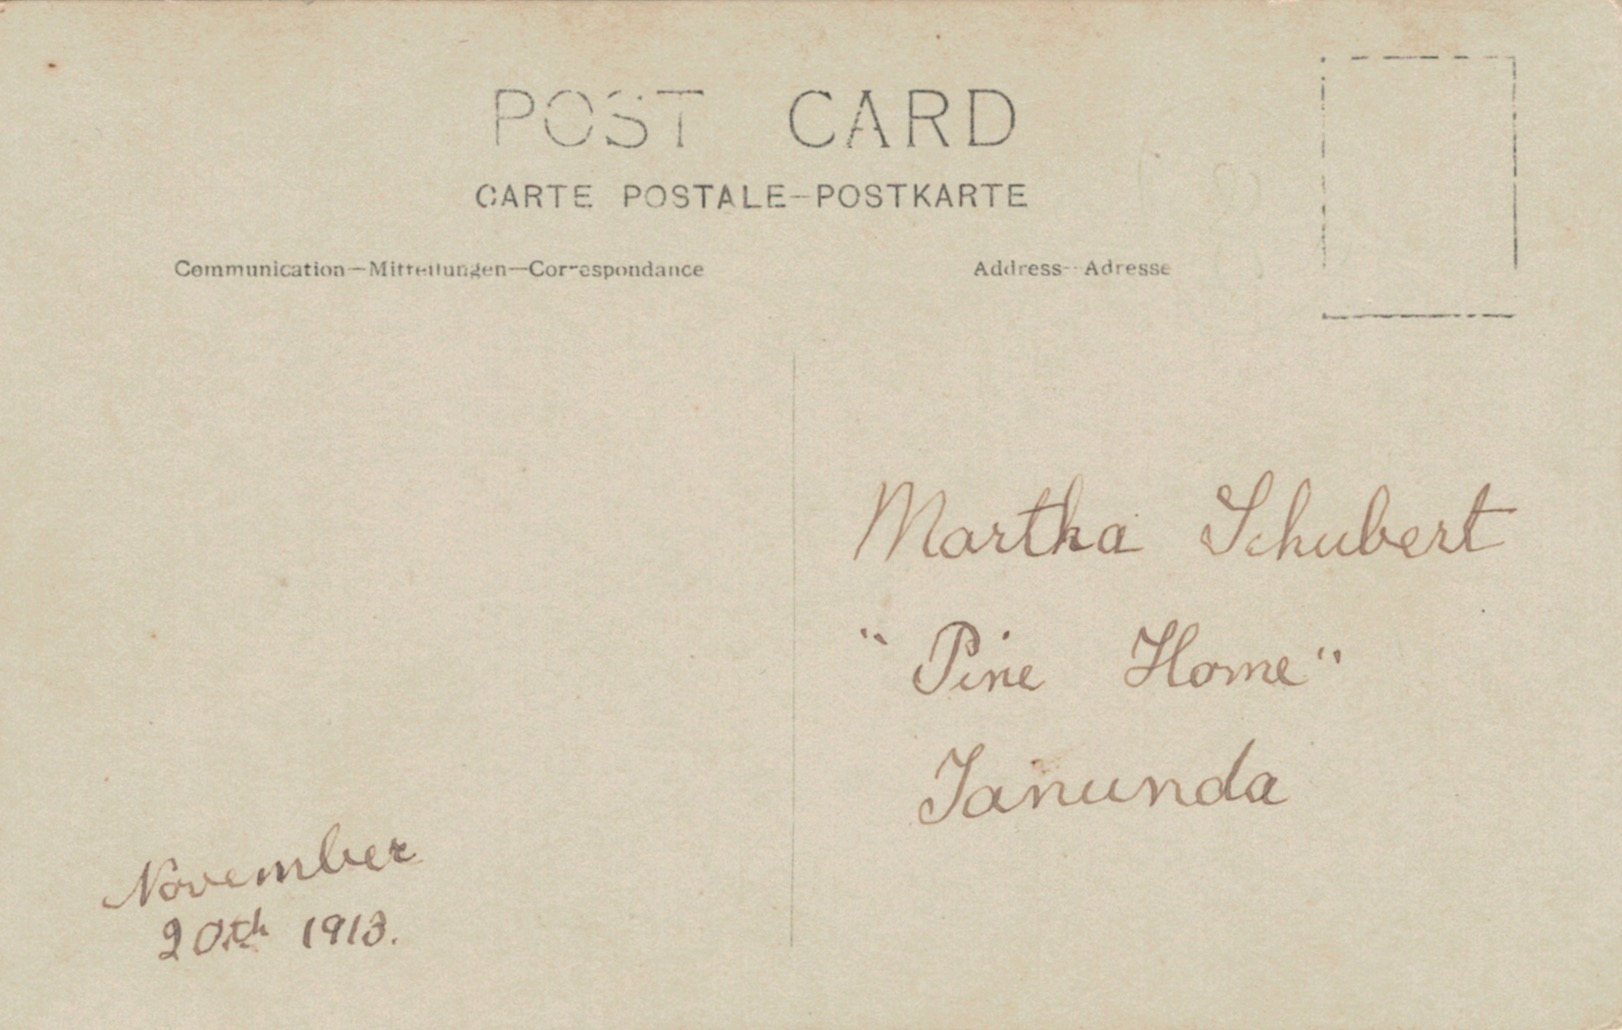 POST CARD
CARTE POSTALE-POSTKARTE
Communication—Mitteilungen—Correspondance
Address—Adresse
Martha Schubert
"Pine Home"
Tanunda
November
20th 1913.